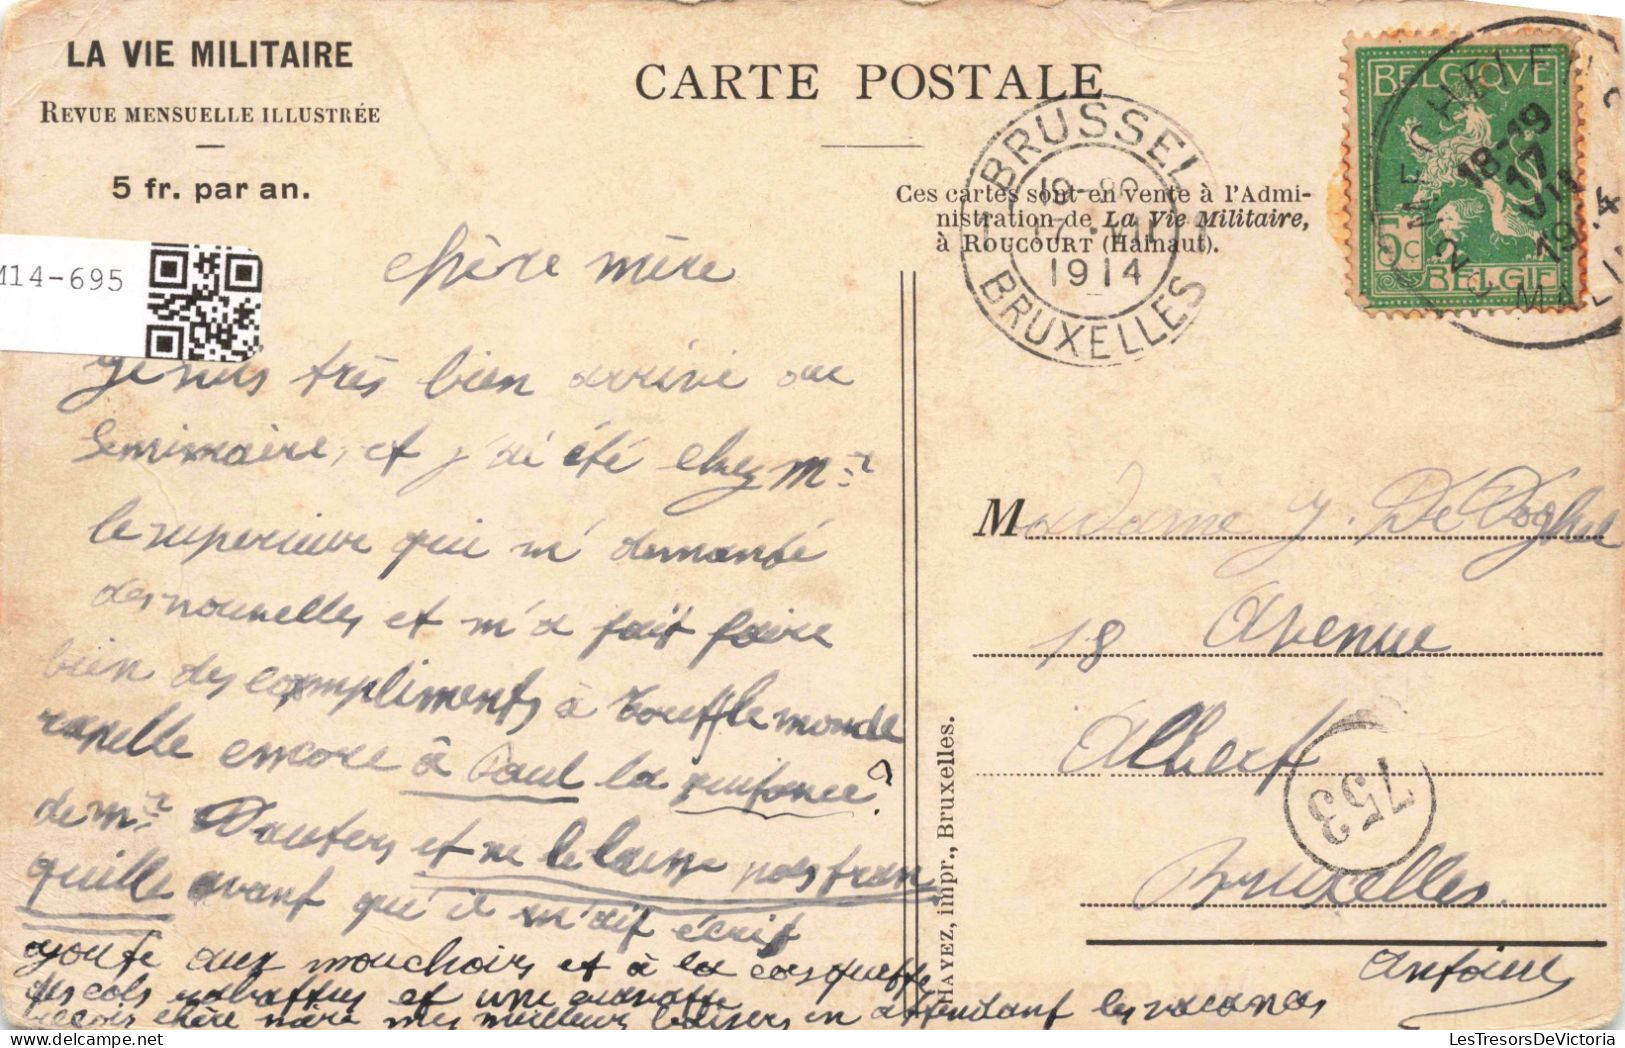 LA VIE MILITAIRE
REVUE MENSUELLE ILLUSTRÉE
5 fr. par an.
M14-695
CARTE POSTALE
Ces cartes sont en vente à l'Admi-
nistration de La Vie Militaire,
à ROUCOURT (Hainaut).
BRUSSEL
1914
BRUXELLES
BELGIQUE
5c
BELGIË
MECHELEN
18-19
17
VII
1914
MALINES
chère mère
Je suis très bien arrivé au
Seminaire, et j'ai été chez Mr
le superieur qui m'demandé
des nouvelles et m'a fait faire
bien des compliments à toutle monde
rapelle encore à Paul la quitance?
de mr Wauters et ne le laisse pas tran
quille avant qu'il m'ait écrit
ajoute aux mouchoirs et à la casquette
des cols rabattus et une cravatte
Reçois chère mère mes meilleurs baisers en attendant les vacances
Antoine
Madame J. De Doghel
18 Avenue
Albert
Bruxelles.
753
HAYEZ, impr., Bruxelles.
LesTresorsDeVictoria.com